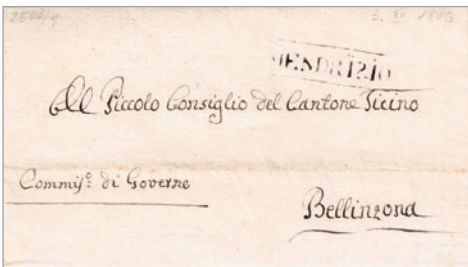 3. XI. 1815
MENDRISIO
Al Piccolo Consiglio del Cantone Ticino
Commiss.º di Governo
Bellinzona